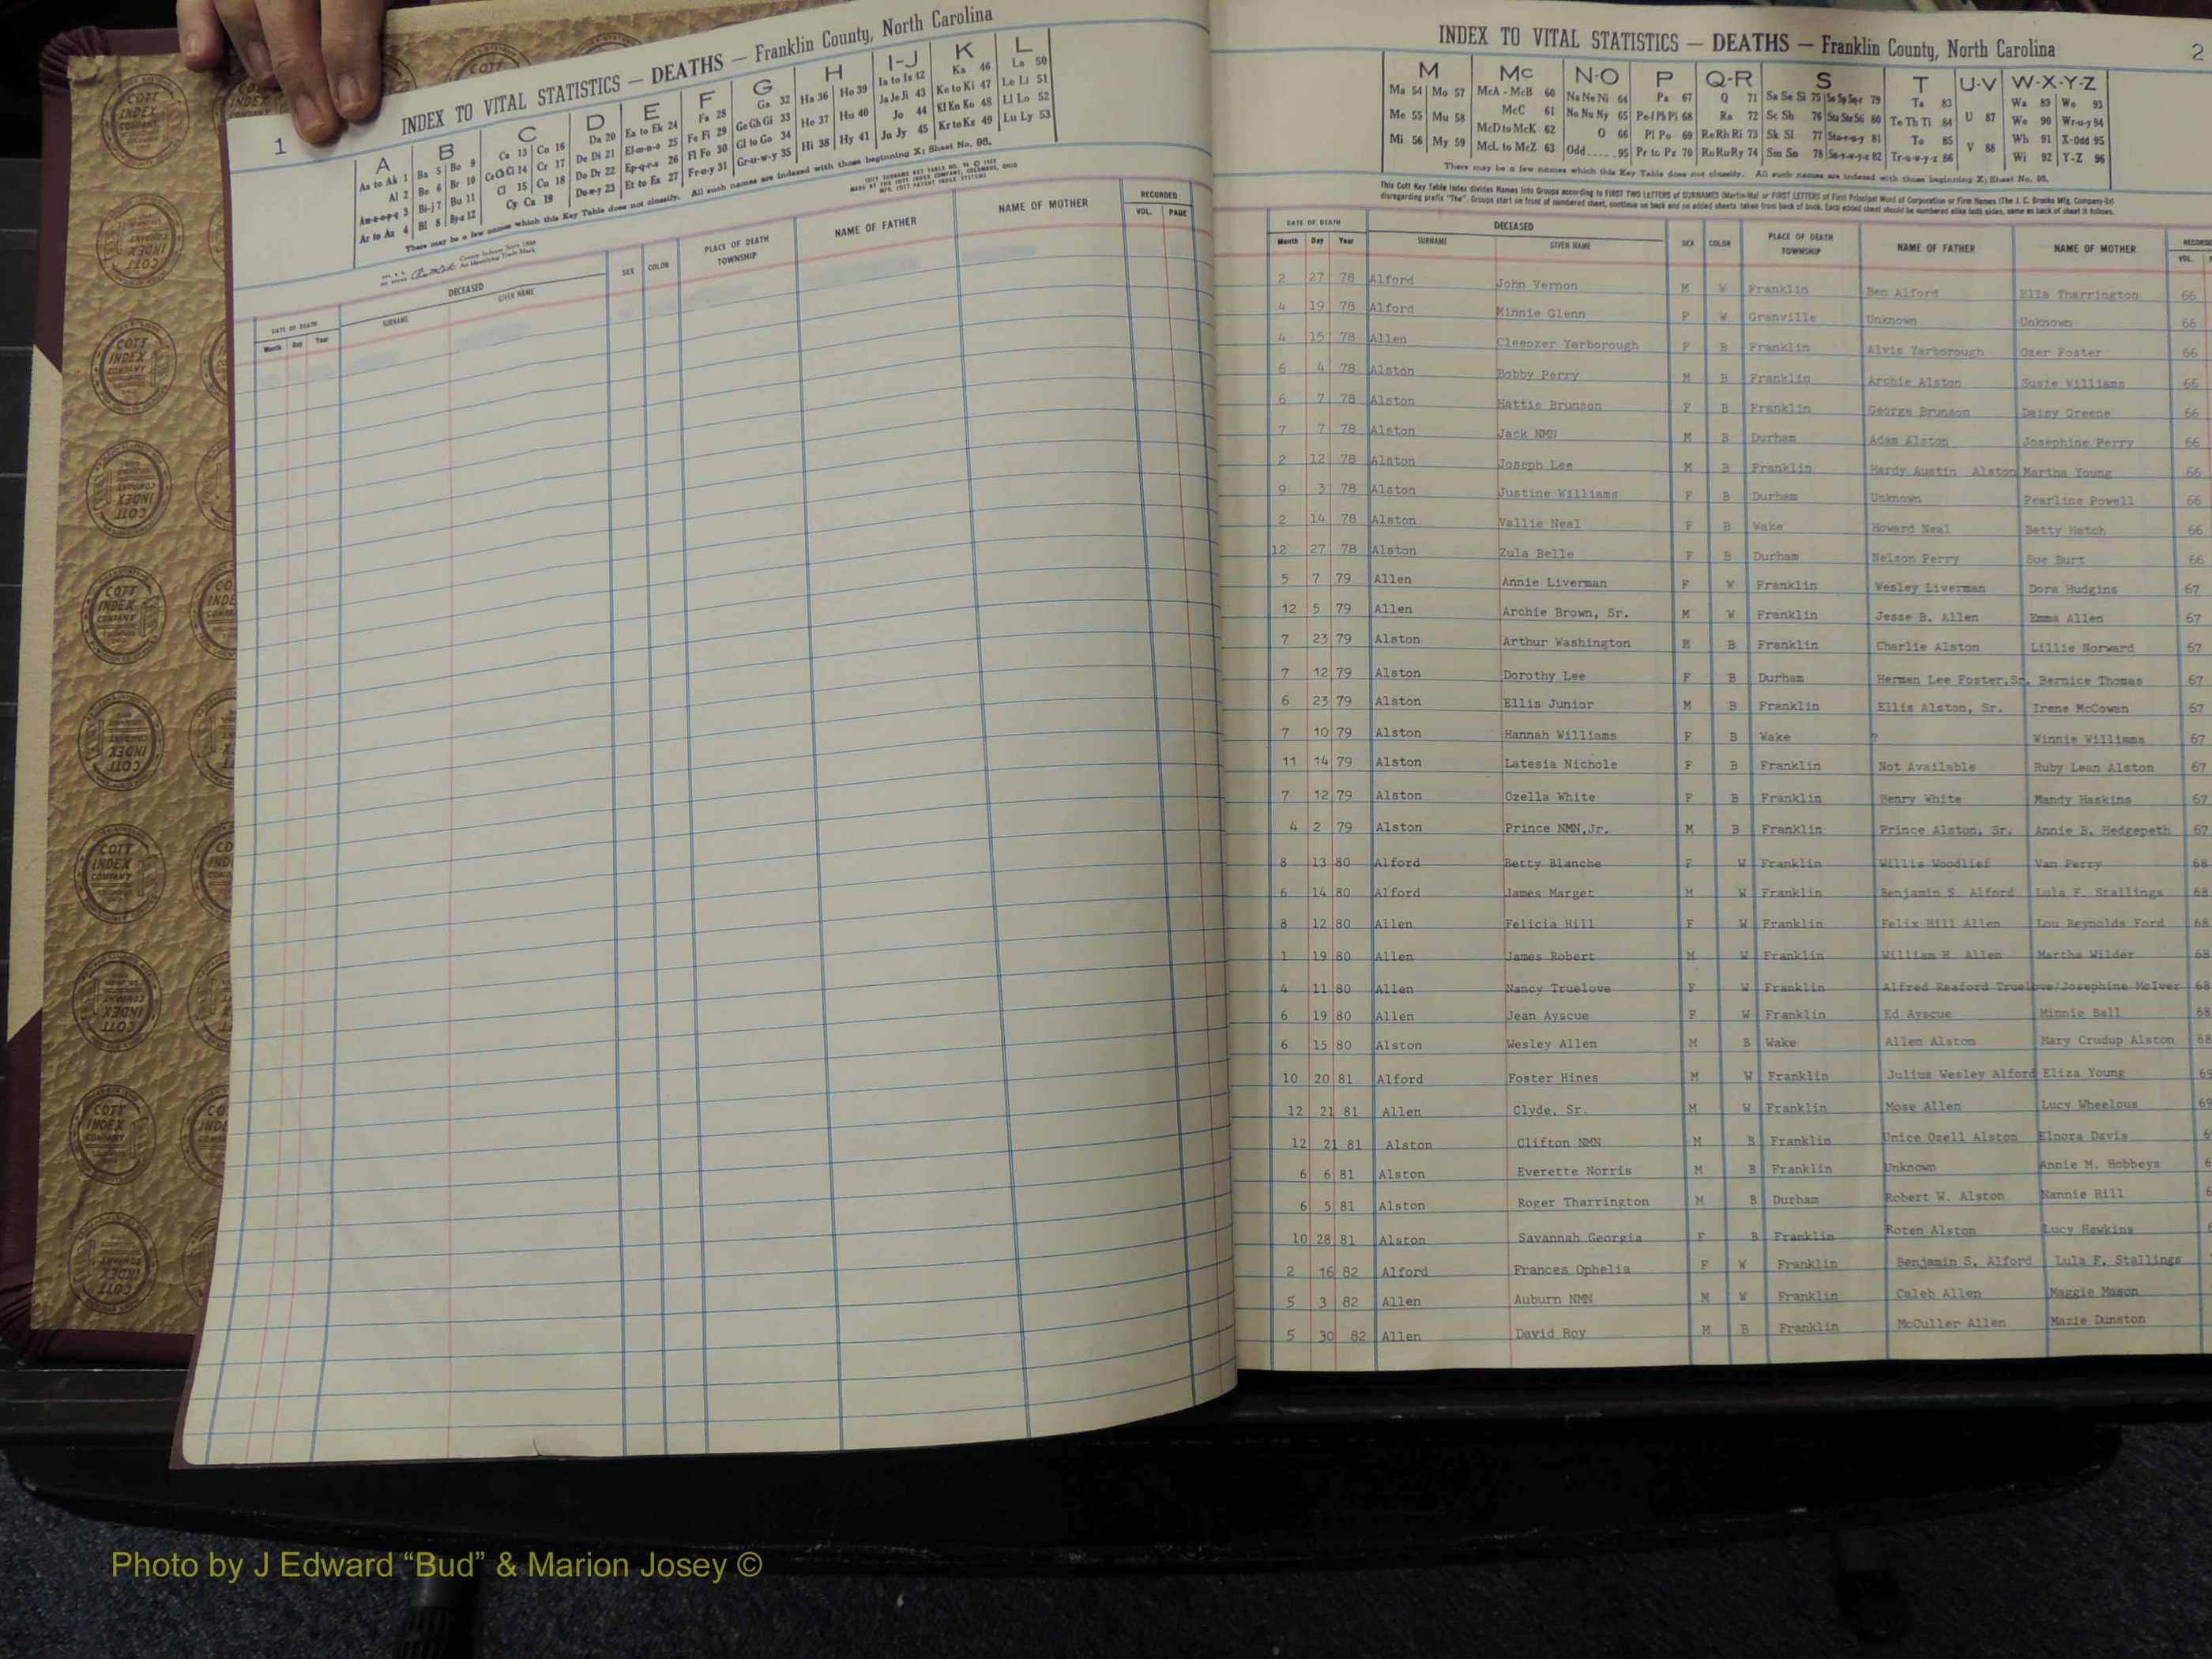 1
INDEX TO VITAL STATISTICS — DEATHS — Franklin County, North Carolina
A B C D E F G H I-J K L
Aa to Ak 1 Ba 5 Bo 9 Ca 13 Co 16 Da 20 Ea to Ek 24 Fa 28 Ga 32 Ha 36 Ho 39 Ia to Iz 42 Ka 46 La 50
Al 2 Be 6 Br 10 Ce Ch Ci 14 Cr 17 De Di 21 El-m-n-o 25 Fe Fi 29 Ge Gh Gi 33 He 37 Hu 40 Ja Je Ji 43 Ke to Ki 47 Le Li 51
Am-n-o-p-q 3 Bi-j 7 Bu 11 Cl 15 Cu 18 Do Dr 22 Ep-q-r-s 26 Fl Fo 30 Gl to Go 34 Hi 38 Hy 41 Jo 44 Kl Kn Ko 48 Ll Lo 52
Ar to Az 4 Bl 8 By-z 12 Cy Cz 19 Du-w-y 23 Et to Ez 27 Fr-u-y 31 Gr-u-w-y 35 Ju Jy 45 Kr to Kz 49 Lu Ly 53
There may be a few names which this Key Table does not classify. All such names are indexed with those beginning X; Sheet No. 95.
DATE OF DEATH DECEASED SEX COLOR PLACE OF DEATH TOWNSHIP NAME OF FATHER NAME OF MOTHER RECORDED
Month Day Year SURNAME GIVEN NAME VOL. PAGE
INDEX TO VITAL STATISTICS — DEATHS — Franklin County, North Carolina
2
M Mc N-O P Q-R S T U-V W-X-Y-Z
Ma 54 Mo 57 McA - McB 60 Na Ne Ni 64 Pa 67 Q 71 Sa Se Si 75 So Sp Sq-r 79 Ta 83 U 87 Wa 89 Wo 93
Me 55 Mu 58 McC 61 No Nu Ny 65 Pe Pf Ph Pi 68 Ra 72 Sc Sh 76 Sta Ste Sti 80 Te Th Ti 84 V 88 We 90 Wr-u-y 94
Mi 56 My 59 McD to McK 62 O 66 Pl Po 69 Re Rh Ri 73 Sk Sl 77 Sto-r-u-y 81 To 85 Wh 91 X-Odd 95
McL to McZ 63 Odd 95 Pr to Pz 70 Ro Ru Ry 74 Sm Sn 78 Su-v-w-y-z 82 Tr-u-w-y-z 86 Wi 92 Y-Z 96
There may be a few names which this Key Table does not classify. All such names are indexed with those beginning X; Sheet No. 95.
This Cott Key Table Index divides Names into Groups according to FIRST TWO LETTERS of SURNAMES (Martin-Ma) or FIRST LETTERS of First Principal Word of Corporation or Firm Names (The J. C. Brooks Mfg. Company-Br)
disregarding prefix "The". Groups start on front of numbered sheet, continue on back and on added sheets taken from back of book. Each added sheet should be numbered alike both sides, same as back of sheet it follows.
DATE OF DEATH DECEASED SEX COLOR PLACE OF DEATH TOWNSHIP NAME OF FATHER NAME OF MOTHER
Month Day Year SURNAME GIVEN NAME VOL.
2 27 78 Alford John Vernon M W Franklin Ben Alford Ella Tharrington 66
4 19 78 Alford Minnie Glenn F W Granville Unknown Unknown 66
4 15 78 Allen Cleeozer Yarborough F B Franklin Alvis Yarborough Ozer Foster 66
6 4 78 Alston Bobby Perry M B Franklin Archie Alston Susie Williams 66
6 7 78 Alston Hattie Brunson F B Franklin George Brunson Daisy Greene 66
7 7 78 Alston Jack NMN M B Durham Adam Alston Josephine Perry 66
2 12 78 Alston Joseph Lee M B Franklin Hardy Austin Alston Martha Young 66
9 3 78 Alston Justine Williams F B Durham Unknown Pearline Powell 66
2 14 78 Alston Vallie Neal F B Wake Howard Neal Betty Hatch 66
12 27 78 Alston Zula Belle F B Durham Nelson Perry Sue Burt 66
5 7 79 Allen Annie Liverman F W Franklin Wesley Liverman Dora Hudgins 67
12 5 79 Allen Archie Brown, Sr. M W Franklin Jesse B. Allen Emma Allen 67
7 23 79 Alston Arthur Washington M B Franklin Charlie Alston Lillie Norward 67
7 12 79 Alston Dorothy Lee F B Durham Herman Lee Foster,Sr. Bernice Thomas 67
6 23 79 Alston Ellis Junior M B Franklin Ellis Alston, Sr. Irene McCowan 67
7 10 79 Alston Hannah Williams F B Wake ? Winnie Williams 67
11 14 79 Alston Latesia Nichole F B Franklin Not Available Ruby Lean Alston 67
7 12 79 Alston Ozella White F B Franklin Henry White Mandy Haskins 67
4 2 79 Alston Prince NMN,Jr. M B Franklin Prince Alston, Sr. Annie B. Hedgepeth 67
8 13 80 Alford Betty Blanche F W Franklin Willis Woodlief Van Perry 68
6 14 80 Alford James Marget M W Franklin Benjamin S. Alford Lula F. Stallings 68
8 12 80 Allen Felicia Hill F W Franklin Felix Hill Allen Lou Reynolds Ford 68
1 19 80 Allen James Robert M W Franklin William H. Allen Martha Wilder 68
4 11 80 Allen Nancy Truelove F W Franklin Alfred Reaford Truelove/Josephine McIver 68
6 19 80 Allen Jean Ayscue F W Franklin Ed Ayscue Minnie Ball 68
6 15 80 Alston Wesley Allen M B Wake Allen Alston Mary Crudup Alston 68
10 20 81 Alford Foster Hines M W Franklin Julius Wesley Alford Eliza Young 69
12 21 81 Allen Clyde, Sr. M W Franklin Mose Allen Lucy Wheelous 69
12 21 81 Alston Clifton NMN M B Franklin Unice Ozell Alston Elnora Davis
6 6 81 Alston Everette Norris M B Franklin Unknown Annie M. Hobbeys
6 5 81 Alston Roger Tharrington M B Durham Robert W. Alston Nannie Hill
10 28 81 Alston Savannah Georgia F B Franklin Roten Alston Lucy Hawkins
2 16 82 Alford Frances Ophelia F W Franklin Benjamin S. Alford Lula F. Stallings
5 3 82 Allen Auburn NMN M W Franklin Caleb Allen Maggie Mason
5 30 82 Allen David Roy M B Franklin McCuller Allen Mazie Dunston
Photo by J Edward “Bud” & Marion Josey ©